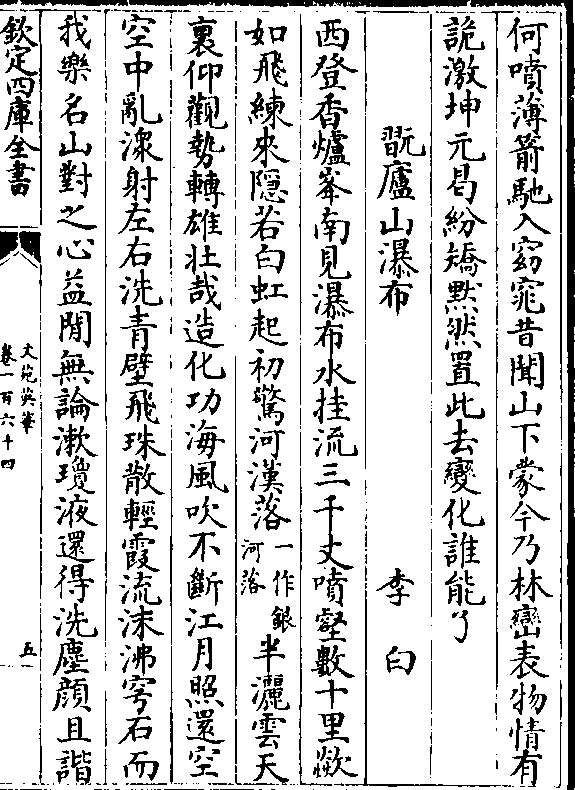 何噴薄箭馳入窈窕昔聞山下蒙今乃林巒表物情有
詭激坤元曷紛矯默然置此去變化誰能了
翫廬山瀑布 李白
西登香爐峯南見瀑布水挂流三千丈噴壑數十里歘
如飛練來隱若白虹起初驚河漢落一作銀河落半灑雲天
裏仰觀勢轉雄壯哉造化功海風吹不斷江月照還空
空中亂潨射左右洗青壁飛珠散輕霞流沫沸穹石而
我樂名山對之心益閒無論漱瓊液還得洗塵顔且諧
欽定四庫全書
文苑英華
卷一百六十四
五